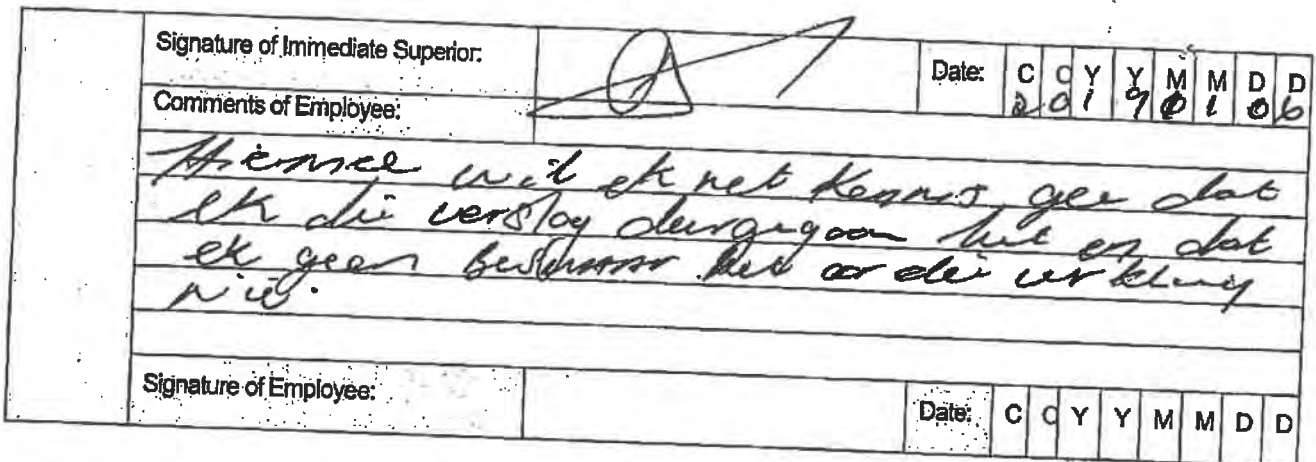 Signature of Immediate Superior:
Date: C C Y Y M M D D
2 0 1 9 0 1 0 6
Comments of Employee:
Hiermee wil ek net kennis gee dat
ek die verslag deurgegaan het en dat
ek geen beswaar het oor die verklaring
nie.
Signature of Employee:
Date: C C Y Y M M D D